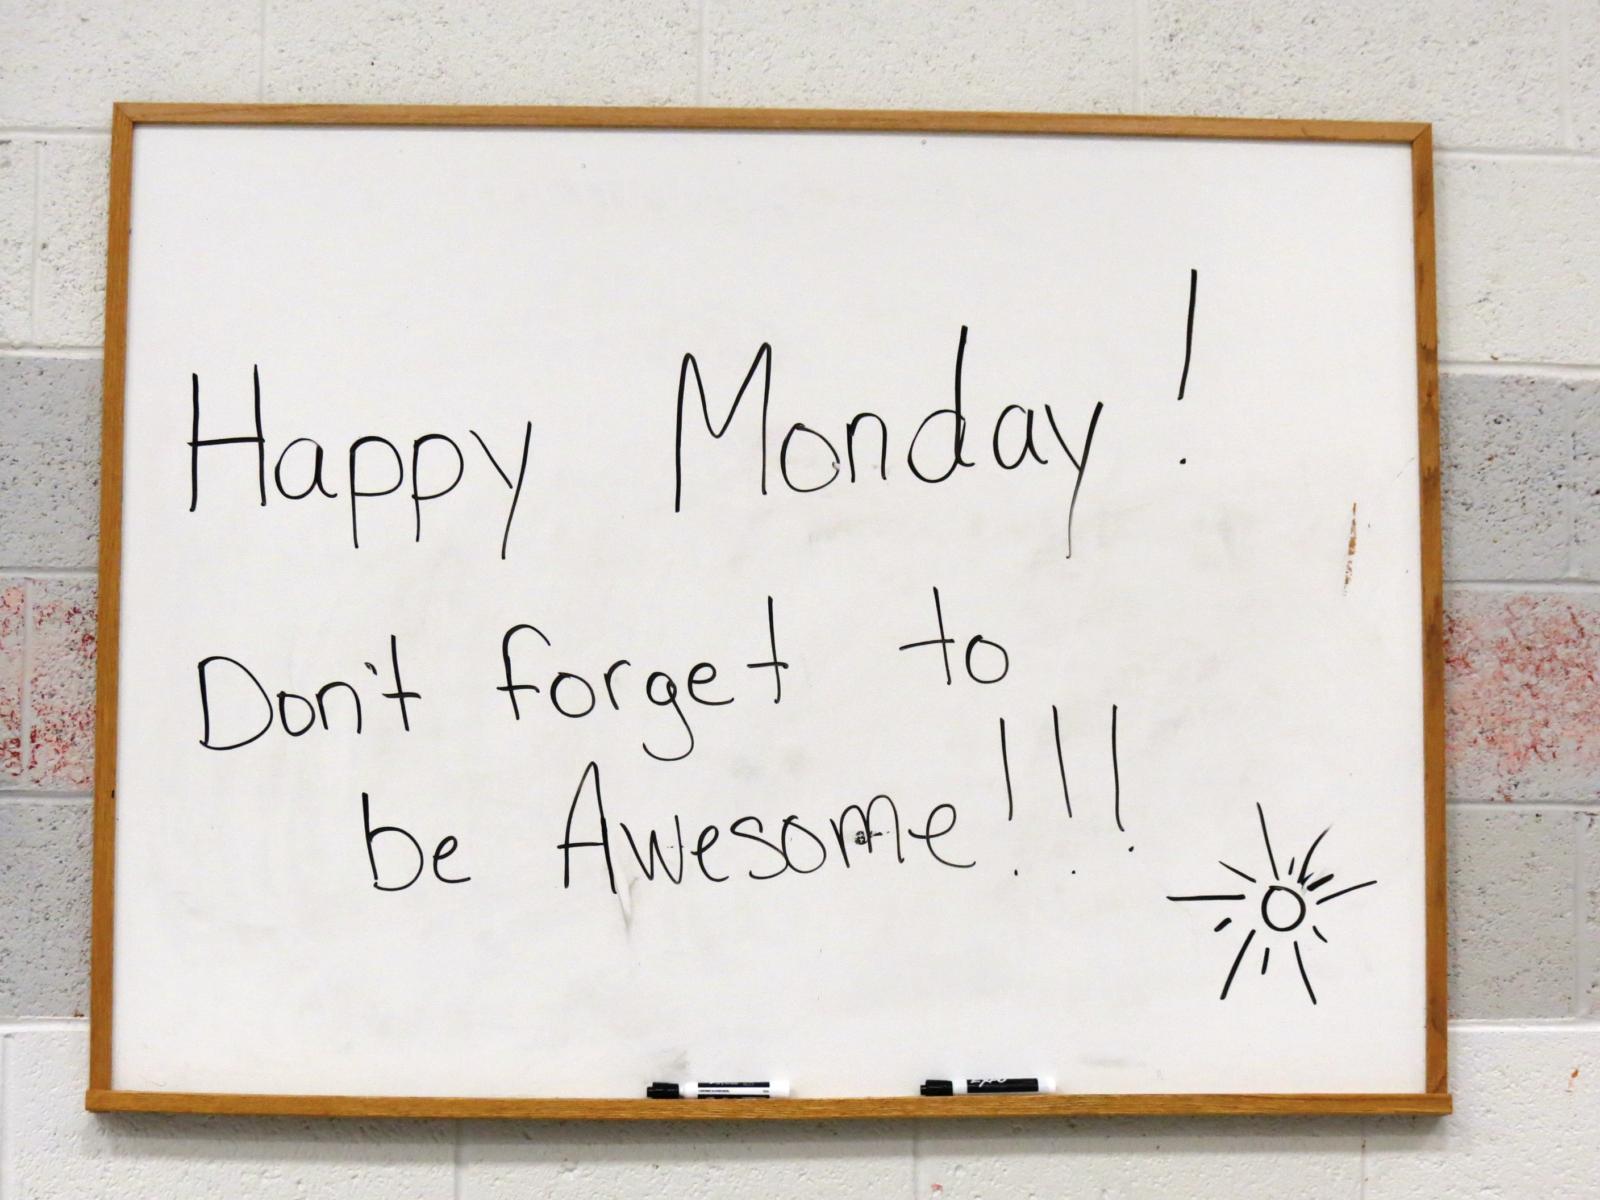 Happy Monday!
Don't forget to
be Awesome!!!
Expo